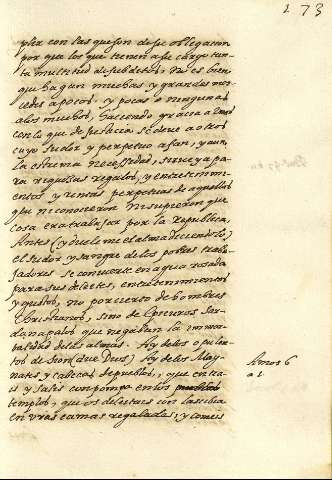 273
plir con las que son de su obligacion
por que los que tienen a su cargo tan-
ta multitud de subditos, no es bien
que hagan muchas y grandes mer-
cedes a pocos, y pocas o ningunas
a los muchos, Haciendo gracia a unos
con lo que de justicia se deve a otros
cuyo sudor y perpetuo afan, y aun
la estrema necessidad, sirve ya pa-
ra regalos, y entretenimi-
entos y rentas perpetuas de aquellos
que ni conocieron ni supieron que
cosa era trabajar por la republica,
Antes (y duele me el alma diciendolo)
el sudor y sangre de los pobres traba-
jadores se convierte en agua rosada
para sus deleites, entretenimientos
y gustos, no por cierto de hombres
christianos, sino de Epicuros Sar-
danapalos que negaban la immor-
talidad de las almas. Ay de los opulen-
tos de Sion (dice Dios) Ay de los Mag-
nates y cabeças de pueblos, que entra-
is y salis con pompa en los
templos, que os deleitais con lascibia
en vras camas regaladas, y comeis
Amos 6
a 1.